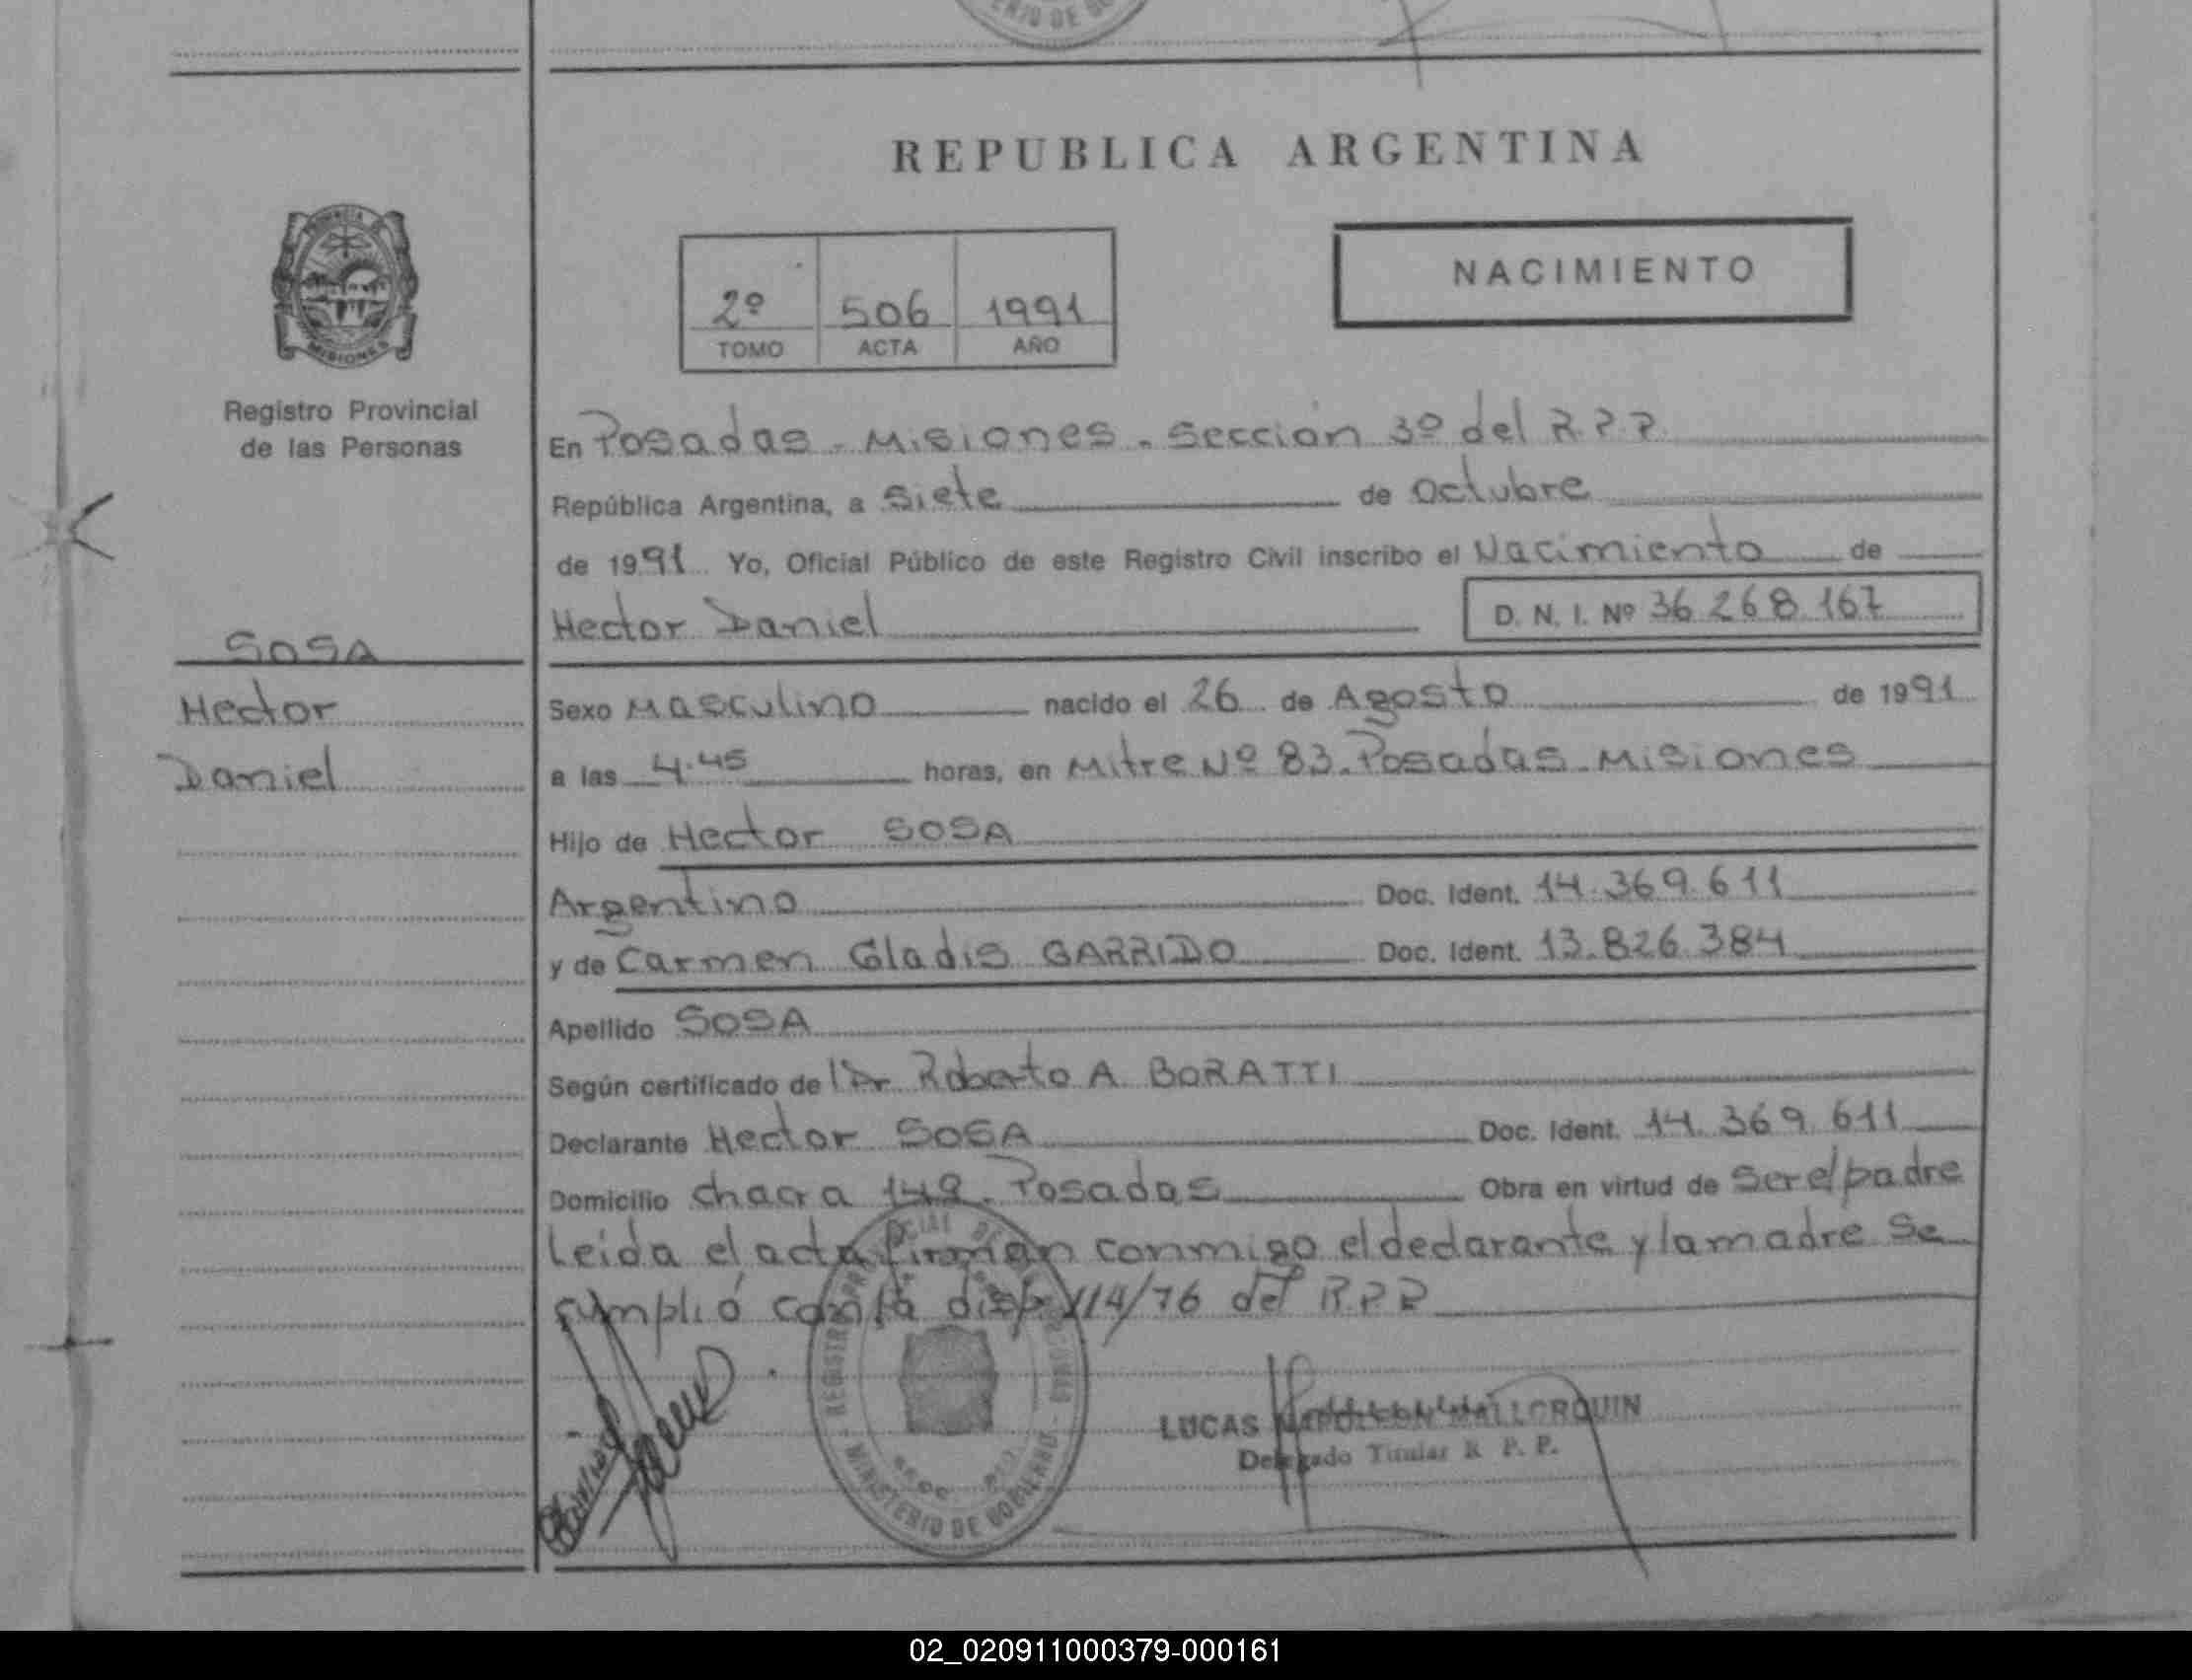 ERIO DE GO
REPUBLICA ARGENTINA
PROVINCIA DE
MISIONES
Registro Provincial
de las Personas
NACIMIENTO
2º 506 1991
TOMO ACTA AÑO
En Posadas - Misiones - Sección 3º del R.P.P.
República Argentina, a Siete de Octubre
de 1991 Yo, Oficial Público de este Registro Civil inscribo el Nacimiento de
Hector Daniel D. N. I. Nº 36.268.167
SOSA
Hector
Daniel
Sexo Masculino nacido el 26 de Agosto de 1991
a las 4.45 horas, en Mitre Nº 83. Posadas. Misiones
Hijo de Hector SOSA
Argentino Doc. Ident. 14.369.611
y de Carmen Gladis GARRIDO Doc. Ident. 13.826.384
Apellido SOSA
Según certificado de l Dr Roberto A. BORATTI
Declarante Hector SOSA Doc. Ident. 14.369.611
Domicilio chacra 149. Posadas Obra en virtud de Ser el padre
Leida el acta firman conmigo el declarante y la madre Se
cumplió con la disp. 114/76 del R.P.P.
MINISTERIO DE GOBIERNO
LUCAS NAPOLEON MALLORQUIN
Delegado Titular R. P. P.
02_020911000379-000161